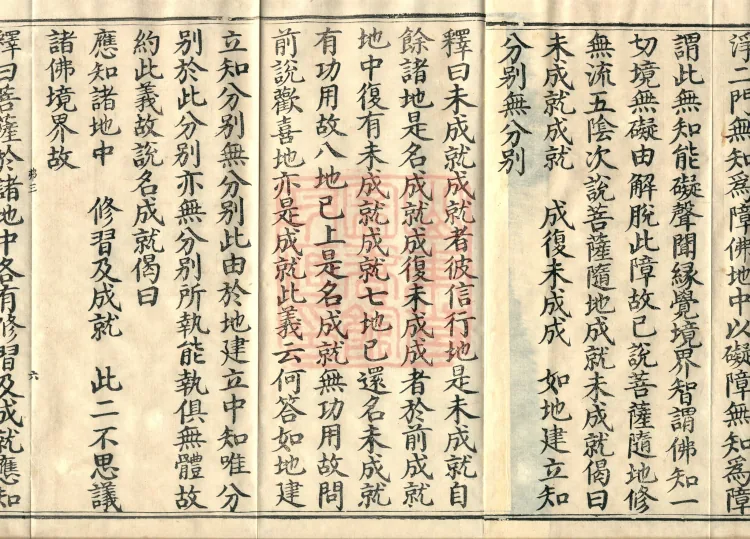 浮二門無知為障佛地中以礙障無知為障
謂此無知能礙聲聞緣覺境界智謂佛知一
切境無礙由解脫此障故已說菩薩隨地修
無流五陰次說菩薩隨地成就未成就偈曰
未成就成就　成復未成成　如地建立知
分別無分別
釋曰未成就成就者彼信行地是未成就自
餘諸地是名成就成復未成成者於前成就
地中復有未成就成就七地已還名未成就
有功用故八地已上是名成就無功用故問
前說歡喜地亦是成就此義云何答如地建
立知分別無分別此由於地建立中知唯分
別於此分別亦無分別所執能執俱無體故
約此義故說名成就偈曰
應知諸地中　修習及成就　此二不思議
諸佛境界故
釋曰菩薩於諸地中各有修習及成就應知